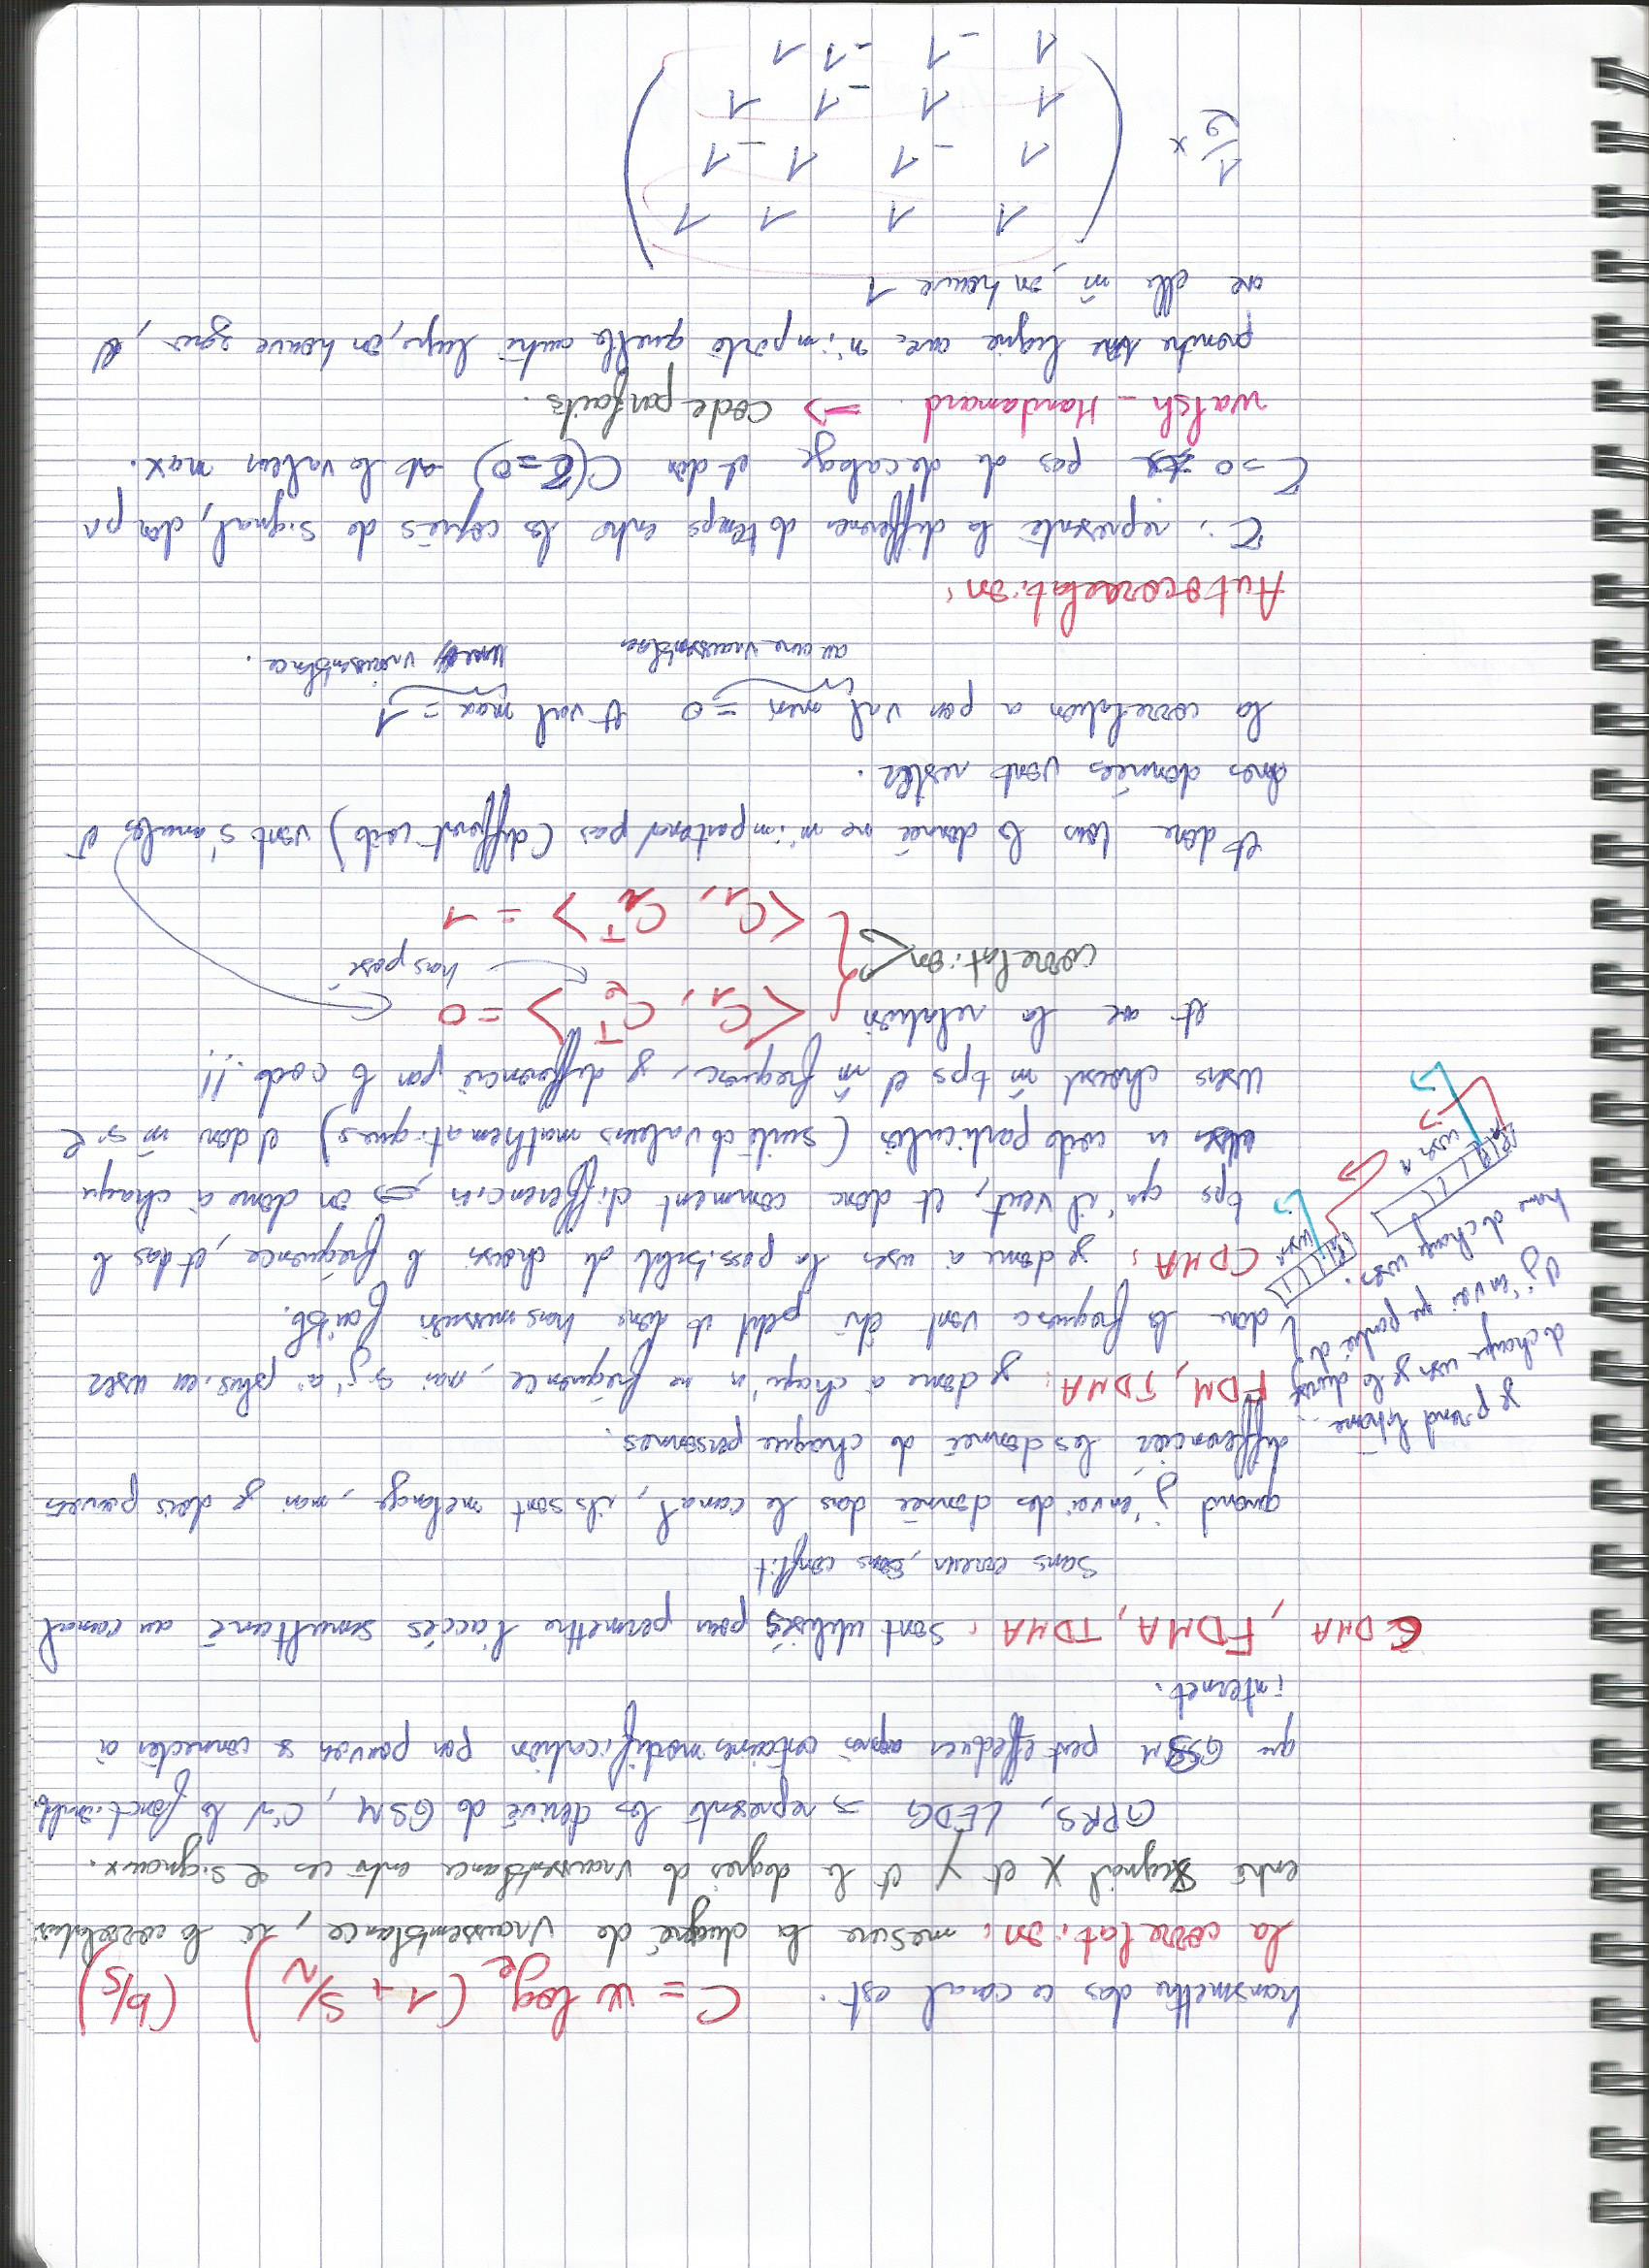 transmettre das ce canal est : C = W log2 (1 + S/N) (b/s)
la correlation : mesure la dugré de vraissemblance, ie la correlation
entre signal X et Y et le degres de vraissemblance entre ces 2 signaux.
GPRS, LEDG => represente les derivé de GSM, C'est la fonctionalité
que GSM peut effectuer après certaines modification pour pouvoir se connecter à
internet.
CDMA, FDMA, TDMA : sont utilisés pour permettre l'accès simultané au canal
sans erreur, sans conflit
quand j'envoi des donnée dans le canal, ils sont melangé, mai je dois pouvoir
differencier les donneé de chaque personnes.
FDM, TDMA : je donne à chaqu'n ne fréquence, mai si j'ai plusieu user
donc la frequence vont etre petit et donc transmission faible.
je prend trame
de chaque user je la divise
et j'envoi une partie de
trame de chaque user.
user 1
user 2
CDMA : je donne à user la possibilité de choisir la frequence, et das le
tps qu'il veut, et donc comment differencier => on donne à chaque
user u code particulier (suite de valeurs mathematiques) et donc m̂ si 2
users choisit m̂ tps et m̂ frequence, je differencie par le code !!!
et ac la relation
correlation
<C1, C2^T> = 0
transposé
<C1, C1^T> = 1
et donc tous la donnée ne m'important pas (different code) vont s'annuler, et
mes données vont rester.
la correlation a pour val min = 0 et val max = 1
aucune vraissemblance
vraissemblance.
Autocorrelation :
τ : represente la difference de temps entre les copies de signal, donc pr
τ=0 pas de decalage et donc C(τ=0) est la valeur max.
Walsh - Handamard => Code parfaits.
prendre une ligne avec n'importe quelle autre ligne, on trouve zero, et
avc elle m̂, on trouve 1
1/2 x
1 1 1 1
1 -1 1 -1
1 1 -1 1
1 -1 -1 1